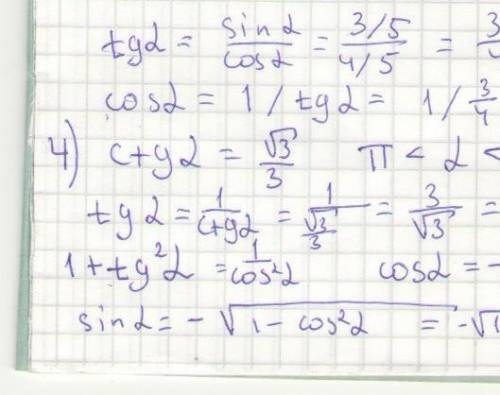 tgα = sinα/cosα = 3/5 / 4/5 = 3
cosα = 1 / tgα = 1 / 3/4
4) ctgα = √3/3 π < α <
tgα = 1/ctgα = 1/(√3/3) = 3/√3 =
1 + tg²α = 1/cos²α cosα = -
sinα = - √(1 - cos²α) = -√1